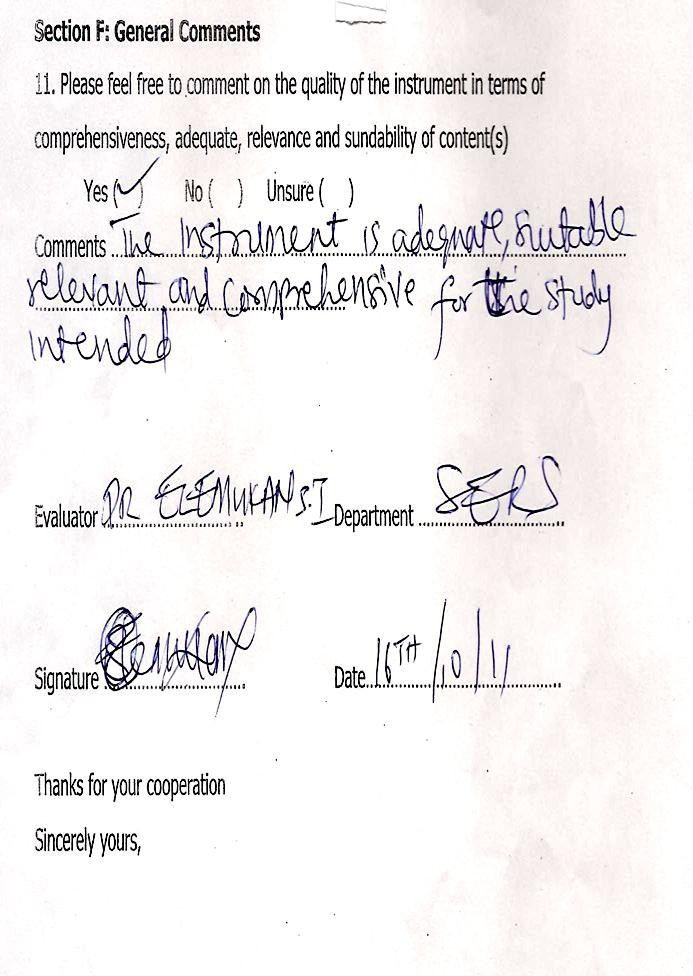 Section F: General Comments
11. Please feel free to comment on the quality of the instrument in terms of
comprehensiveness, adequate, relevance and sundability of content(s)
Yes (✓) No ( ) Unsure ( )
Comments The Instrument is adequate, suitable
relevant and comprehensive for the study
intended
Evaluator DR ELEMUKAN S.I Department SERS
Signature Date 16TH/10/11
Thanks for your cooperation
Sincerely yours,